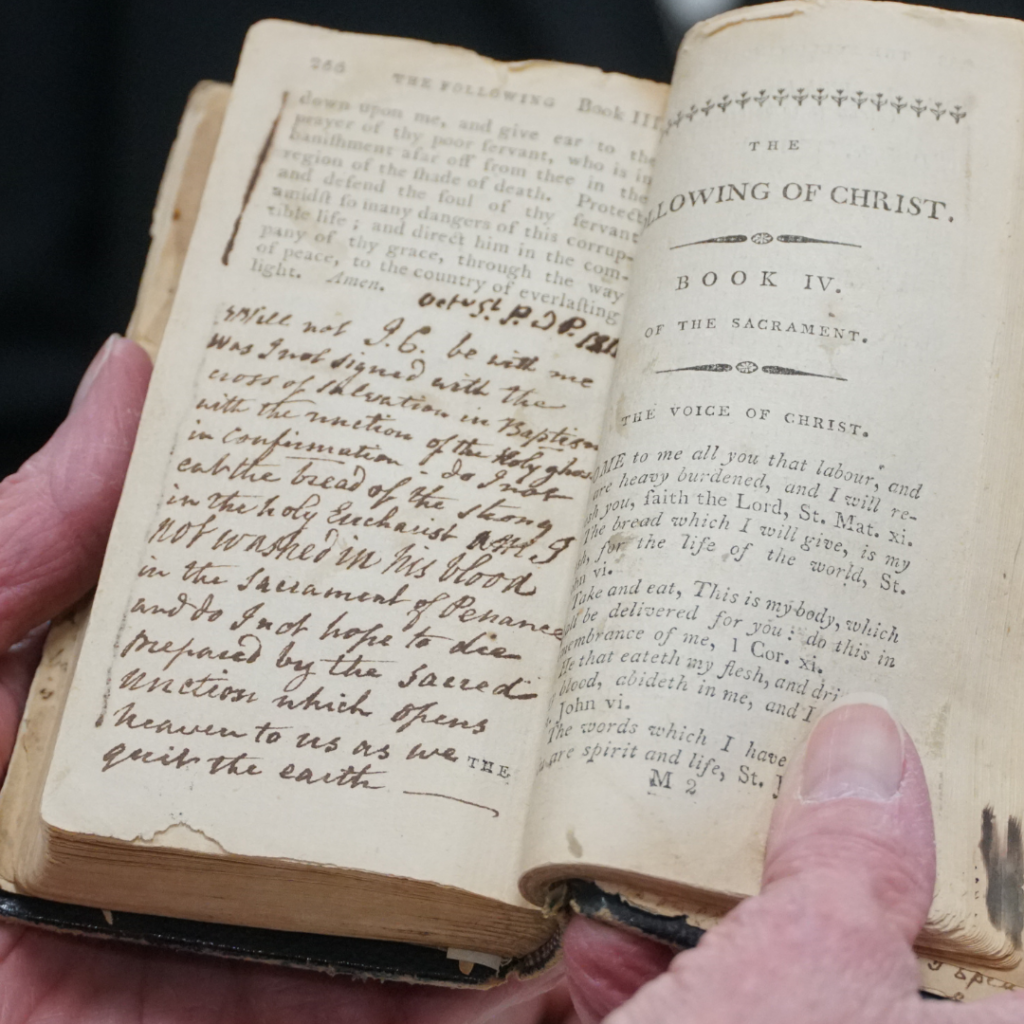 266 THE FOLLOWING Book III.
down upon me, and give ear to the
prayer of thy poor ſervant, who is in
baniſhment afar off from thee in the
region of the ſhade of death. Protect
and defend the ſoul of thy ſervant
amidſt ſo many dangers of this corrup-
tible life; and direct him in the com-
pany of thy grace, through the way
of peace, to the country of everlaſting
light. Amen.
Will not J.C. be with me
was I not signed with the
cross of salvation in Baptism
with the unction of the Holy ghost
in Confirmation - do I not
eat the bread of the strong
in the holy Eucharist am I
not washed in his blood
in the Sacrament of Penance
and do I not hope to die
prepared by the Sacred
unction which opens
heaven to us as we
quit the earth
THE
THE
LLOWING OF CHRIST.
BOOK IV.
OF THE SACRAMENT.
THE VOICE OF CHRIST.
ME to me all you that labour, and
are heavy burdened, and I will re-
you, ſaith the Lord, St. Mat. xi.
The bread which I will give, is my
for the life of the world, St.
vi.
Take and eat, This is my body, which
be delivered for you: do this in
membrance of me, 1 Cor. xi.
He that eateth my fleſh, and dri
blood, abideth in me, and I
John vi.
The words which I have
are spirit and life, St. J
M 2